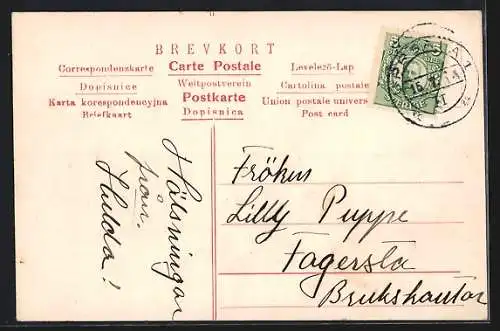 BREVKORT
Correspondenzkarte Carte Postale Levelező-Lap
Dopisnice Weltpostverein Cartolina postale
Karta korespondencyjna Postkarte Union postale univers
Briefkaart Dopisnica Post card
Hälsningar
från
Hulda!
Fröken
Lilly Puppe
Fagersta
Brukskontor